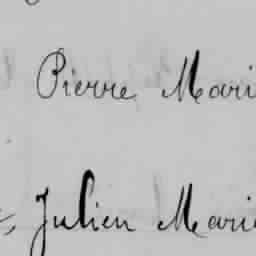 Pierre Mari
Julien Mari